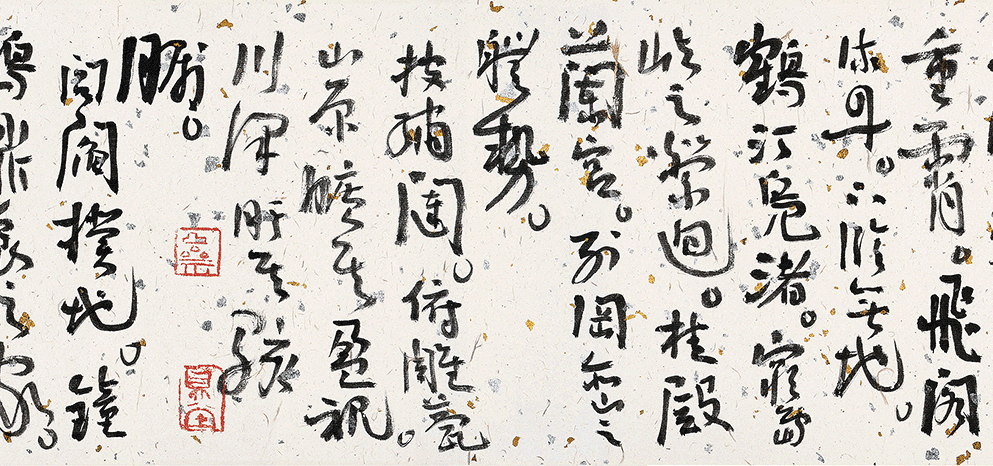 重霄。飛閣
流丹。下臨無地。
鶴汀鳧渚。窮島
嶼之縈迴。桂殿
蘭宮。列岡巒之
體勢。
披繡闥。俯雕甍
山原曠其盈視。
川澤盱其駭
矚。
閭閻撲地。鐘
鳴鼎食之家。